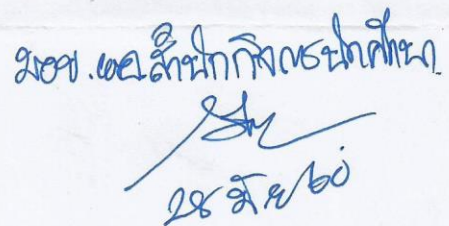 มอบ. ผอ.สำนักกิจการนักศึกษา
28 มี.ค. 60